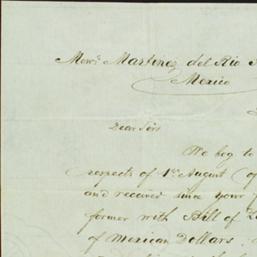 Mess. Martinez del Rio
Mexico
Dear Sirs
We beg to
respects of 1st August
and received since your
former with Bill of
of Mexican Dollars